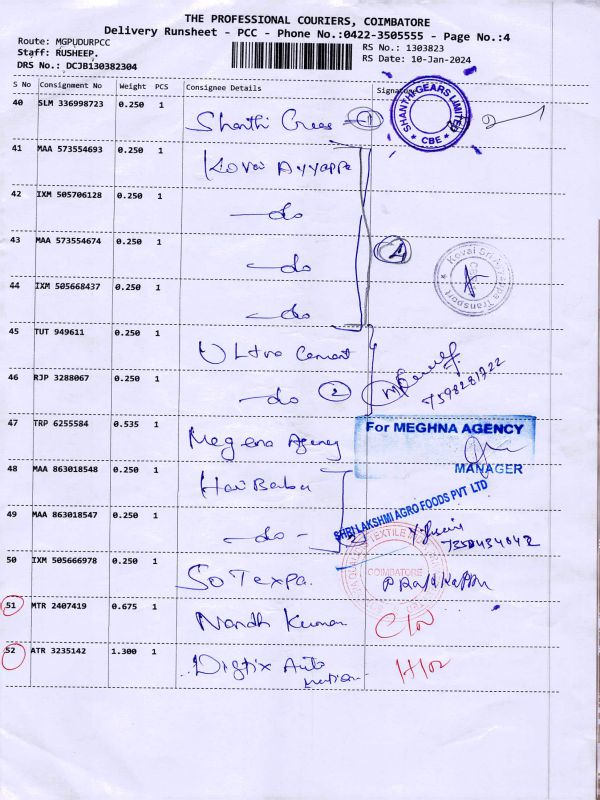 THE PROFESSIONAL COURIERS, COIMBATORE
Delivery Runsheet - PCC - Phone No.:0422-3505555 - Page No.:4
Route: MGPUDURPCC
Staff: RUSHEEP.
DRS No.: DCJB130382304
RS No.: 1303823
RS Date: 10-Jan-2024
S No Consignment No Weight PCS Consignee Details Signature
40 SLM 336998723 0.250 1 Shanthi Gears 1
SHANTHI GEARS LIMITED * CBE *
41 MAA 573554693 0.250 1 Kovai Ayyappa
42 IXM 505706128 0.250 1 do
43 MAA 573554674 0.250 1 do 4
Kovai Sri Ayyappa Transport
44 IXM 505668437 0.250 1 do
45 TUT 949611 0.250 1 Ultra Cement
46 RJP 3288067 0.250 1 do 2
7598281722
47 TRP 6255584 0.535 1 Megena Agency
For MEGHNA AGENCY
MANAGER
48 MAA 863018548 0.250 1 Hari Babu
SHRI LAKSHMI AGRO FOODS PVT LTD
49 MAA 863018547 0.250 1 do - 2
50 IXM 505666978 0.250 1 SoTexpa.
COIMBATORE
51 MTR 2407419 0.675 1 Nandh Kumar
52 ATR 3235142 1.300 1 Digtix Automation